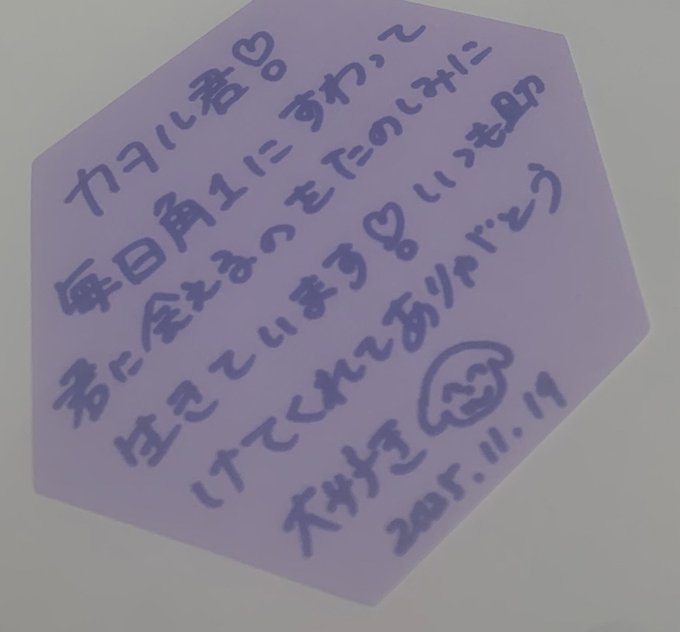 カヲル君♡
毎日角1にすわって
君に会えるのをたのしみに
生きています♡いつも助
けてくれてありがとう
大好き
2025.11.19